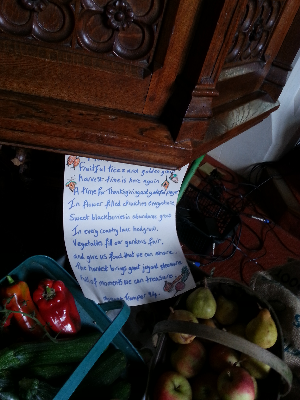 Fruitful trees and golden
harvest time is here again
A time for Thanksgiving and grateful prayer
In flower filled churches everywhere
Sweet blackberries in abundance grow
In every country lane hedgrow,
Vegetables fill our gardens fair,
and give us food that we can share.
The harvest brings great joy and pleasure
full of moments we can treasure